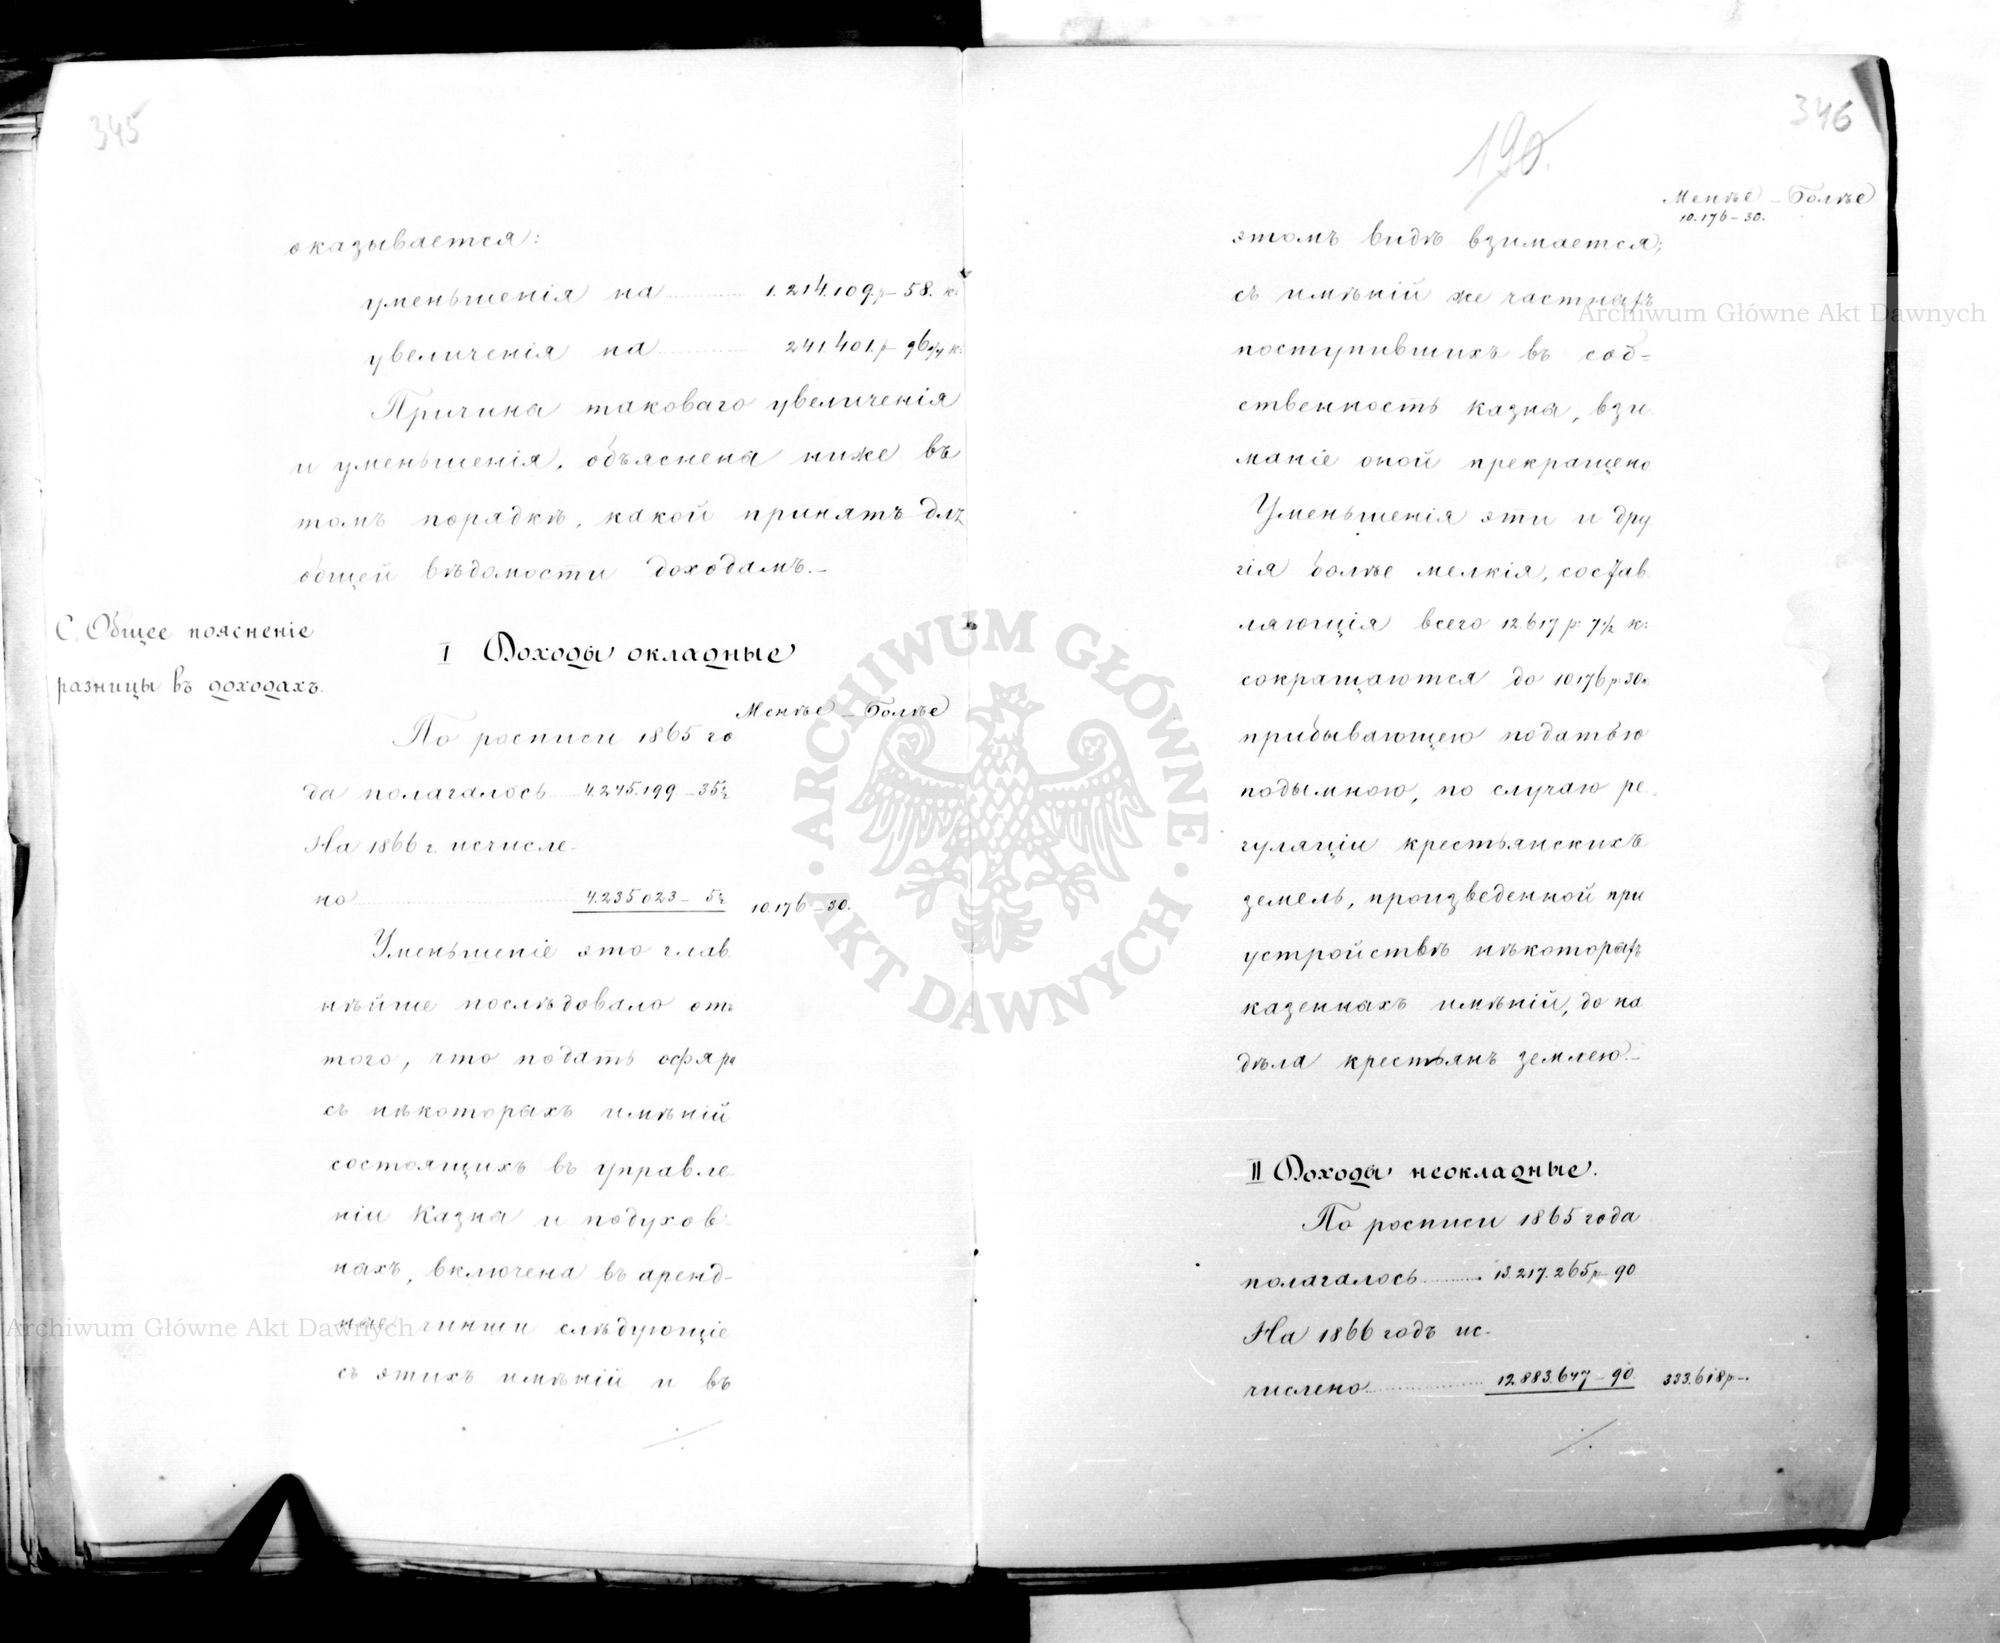 345
оказывается:
уменьшенія на 1.214.109 р – 58. к:
увеличенія на 241.401. р – 96 к:
Причина таковаго увеличенія
и уменьшенія, объяснена ниже въ
томъ порядкѣ, какой принятъ для
общей вѣдомости доходамъ.–
С. Общее поясненіе
разницы въ доходахъ.
I Доходы окладные
Менѣе – Болѣе
По росписи 1865 го
да полагалось 4.245.199 – 35½
На 1866 г. исчисле-
но 4.235.023 – 5½ 10.176 – 30.
Уменьшеніе это глав
нѣйше послѣдовало отъ
того, что подать офяра
съ нѣкоторыхъ имѣній
состоящихъ въ управле
ніи Казны и подухов-
ныхъ, включена въ аренд-
ные чинши слѣдующіе
съ этихъ имѣній и въ
346
190.
Менѣе – Болѣе
10.176 – 30.
этомъ видѣ взимается;
съ имѣній же частныхъ
поступившихъ въ соб=
ственность казны, взи
маніе оной прекращено
Уменьшенія эти и дру
гія болѣе мелкія, состав
ляющія всего 12.617 р: 7½ к:
сокращаются до 10.176 р. 30 к.
прибывающею податью
подымною, по случаю ре-
гуляціи крестьянскихъ
земель, произведенной при
устройствѣ нѣкоторыхъ
казенныхъ имѣній, до на
дѣла крестьянъ землею.–
II Доходы неокладные.
По росписи 1865 года
полагалось 13.217.265 р – 90
На 1866 годъ ис-
числено 12.883.647 – 90 333.618 р –.
Archiwum Główne Akt Dawnych
Archiwum Główne Akt Dawnych
ARCHIWUM GŁÓWNE · AKT DAWNYCH ·